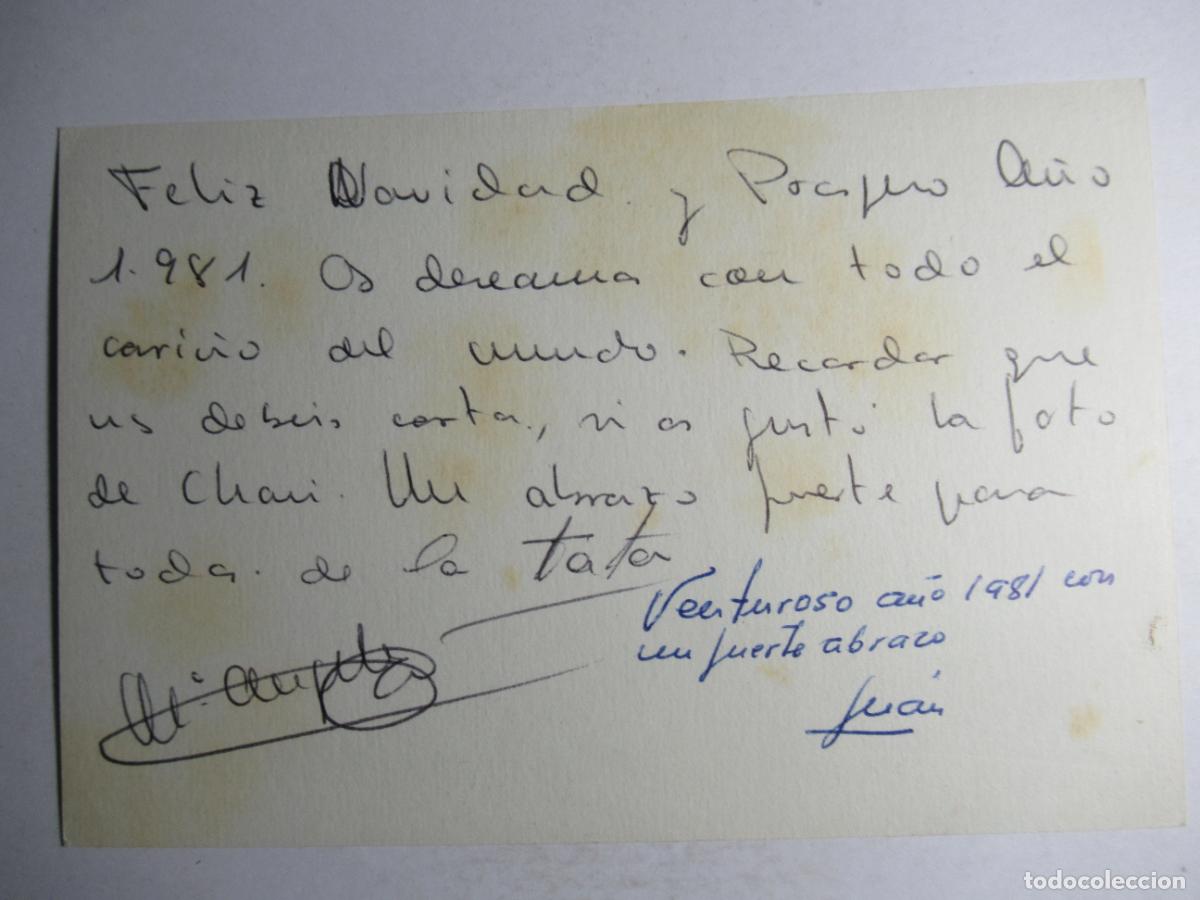 Feliz Navidad y Prospero Año
1.981. Os deseamos con todo el
cariño del mundo. Recordar que
ns debeis carta, si os gustó la foto
de Chari. Un abrazo fuerte para
todos de la tata
Mª
Venturoso año 1981 con
un fuerte abrazo
Juán
todocoleccion